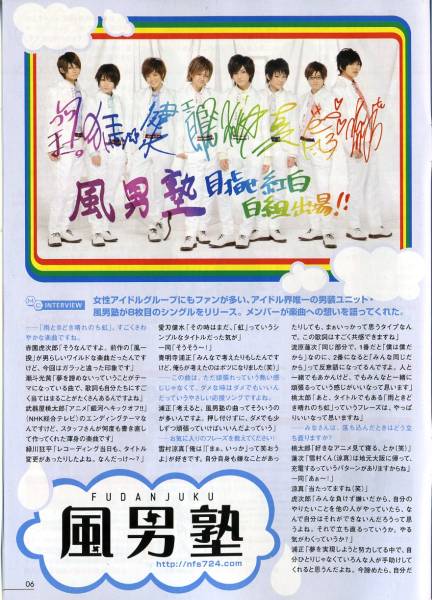 風男塾 目指せ紅白
白組出場!!
MC INTERVIEW
女性アイドルグループにもファンが多い、アイドル界唯一の男装ユニット・
風男塾が8枚目のシングルをリリース。メンバーが楽曲への想いを語ってくれた。
──「雨ときどき晴れのち虹」、すごくさわ
やかな楽曲ですね。
虎次郎「そうなんですよ。前作の「風一
投」が男らしいワイルドな楽曲だったんです
けど、今回はガラッと違った印象です」
瀬斗光黄「夢を諦めないっていうことがテー
マになっている曲で、歌詞も自分たちにすご
く当てはまることがたくさんあるんですよね」
武器屋桃太郎「アニメ「銀河へキックオフ!!」
(NHK総合テレビ)のエンディングテーマな
んですけど、スタッフさんが何度も書き直し
て作ってくれた渾身の楽曲です」
緑川狂平「レコーディング当日も、タイトル
変更があったりしたよね。なんだっけ〜?」
愛刃健水「その時はまだ、「虹」っていうシ
ンプルなタイトルだった気が」
一同「そうそう〜!」
青明寺浦正「みんなで考えたりもしたんです
けど、俺らの案は全ボツになりました(笑)」
──この曲は、ただ頑張れっていう熱い感
じじゃなくて、ダメな時はダメでもいいん
だっていうやさしい応援ソングですよね。
浦正「考えると、風男塾の曲ってそういうの
が多いんですよ。押し付けずに、ダメでも少
しずつ頑張っていけばいいんだよっていう」
──お気に入りのフレーズを教えてください!
雪村涼真「俺は「『まぁ、いっか』って笑おう
よ」が好きです。自分自身も嫌なことがあっ
たりしても、まぁいっかって思うタイプなん
で、この歌詞はすごく共感できますね」
流原蓮次「同じ部分で、1番だと「僕は僕だ
から」なのに、2番になると「みんな同じだ
から」って反意語になってるんですよ。人と
一緒でもあかんけど、でもみんなと一緒に
頑張るっていう感じがいいなって思います」
桃太郎「あと、タイトルでもある「雨ときど
き晴れのち虹」っていうフレーズは、やっぱ
りいいなって思いますね」
──みなさんは、落ち込んだときはどう立
ち直りますか?
桃太郎「好きなアニメ見て寝る、とか(笑)」
蓮次「雪村くん(涼真)は地元大阪に帰って、
充電するっていうパターンがありますからね」
一同「あぁ〜!」
涼真「当たってますね(笑)」
虎次郎「みんな負けず嫌いだから、自分の
やりたいことを他の人がやっていたら、な
んで自分はそれができないんだろうって思
うよね。それで立ち直るっていうか、からだ
がっていうか」
浦正「夢を実現しようと努力してる中で、自
分ひとりじゃなくていろんな人が手助けして
くれると思うんだよね。今諦めたら、自分だ
FUDANJUKU
風男塾
http://nfs724.com
06